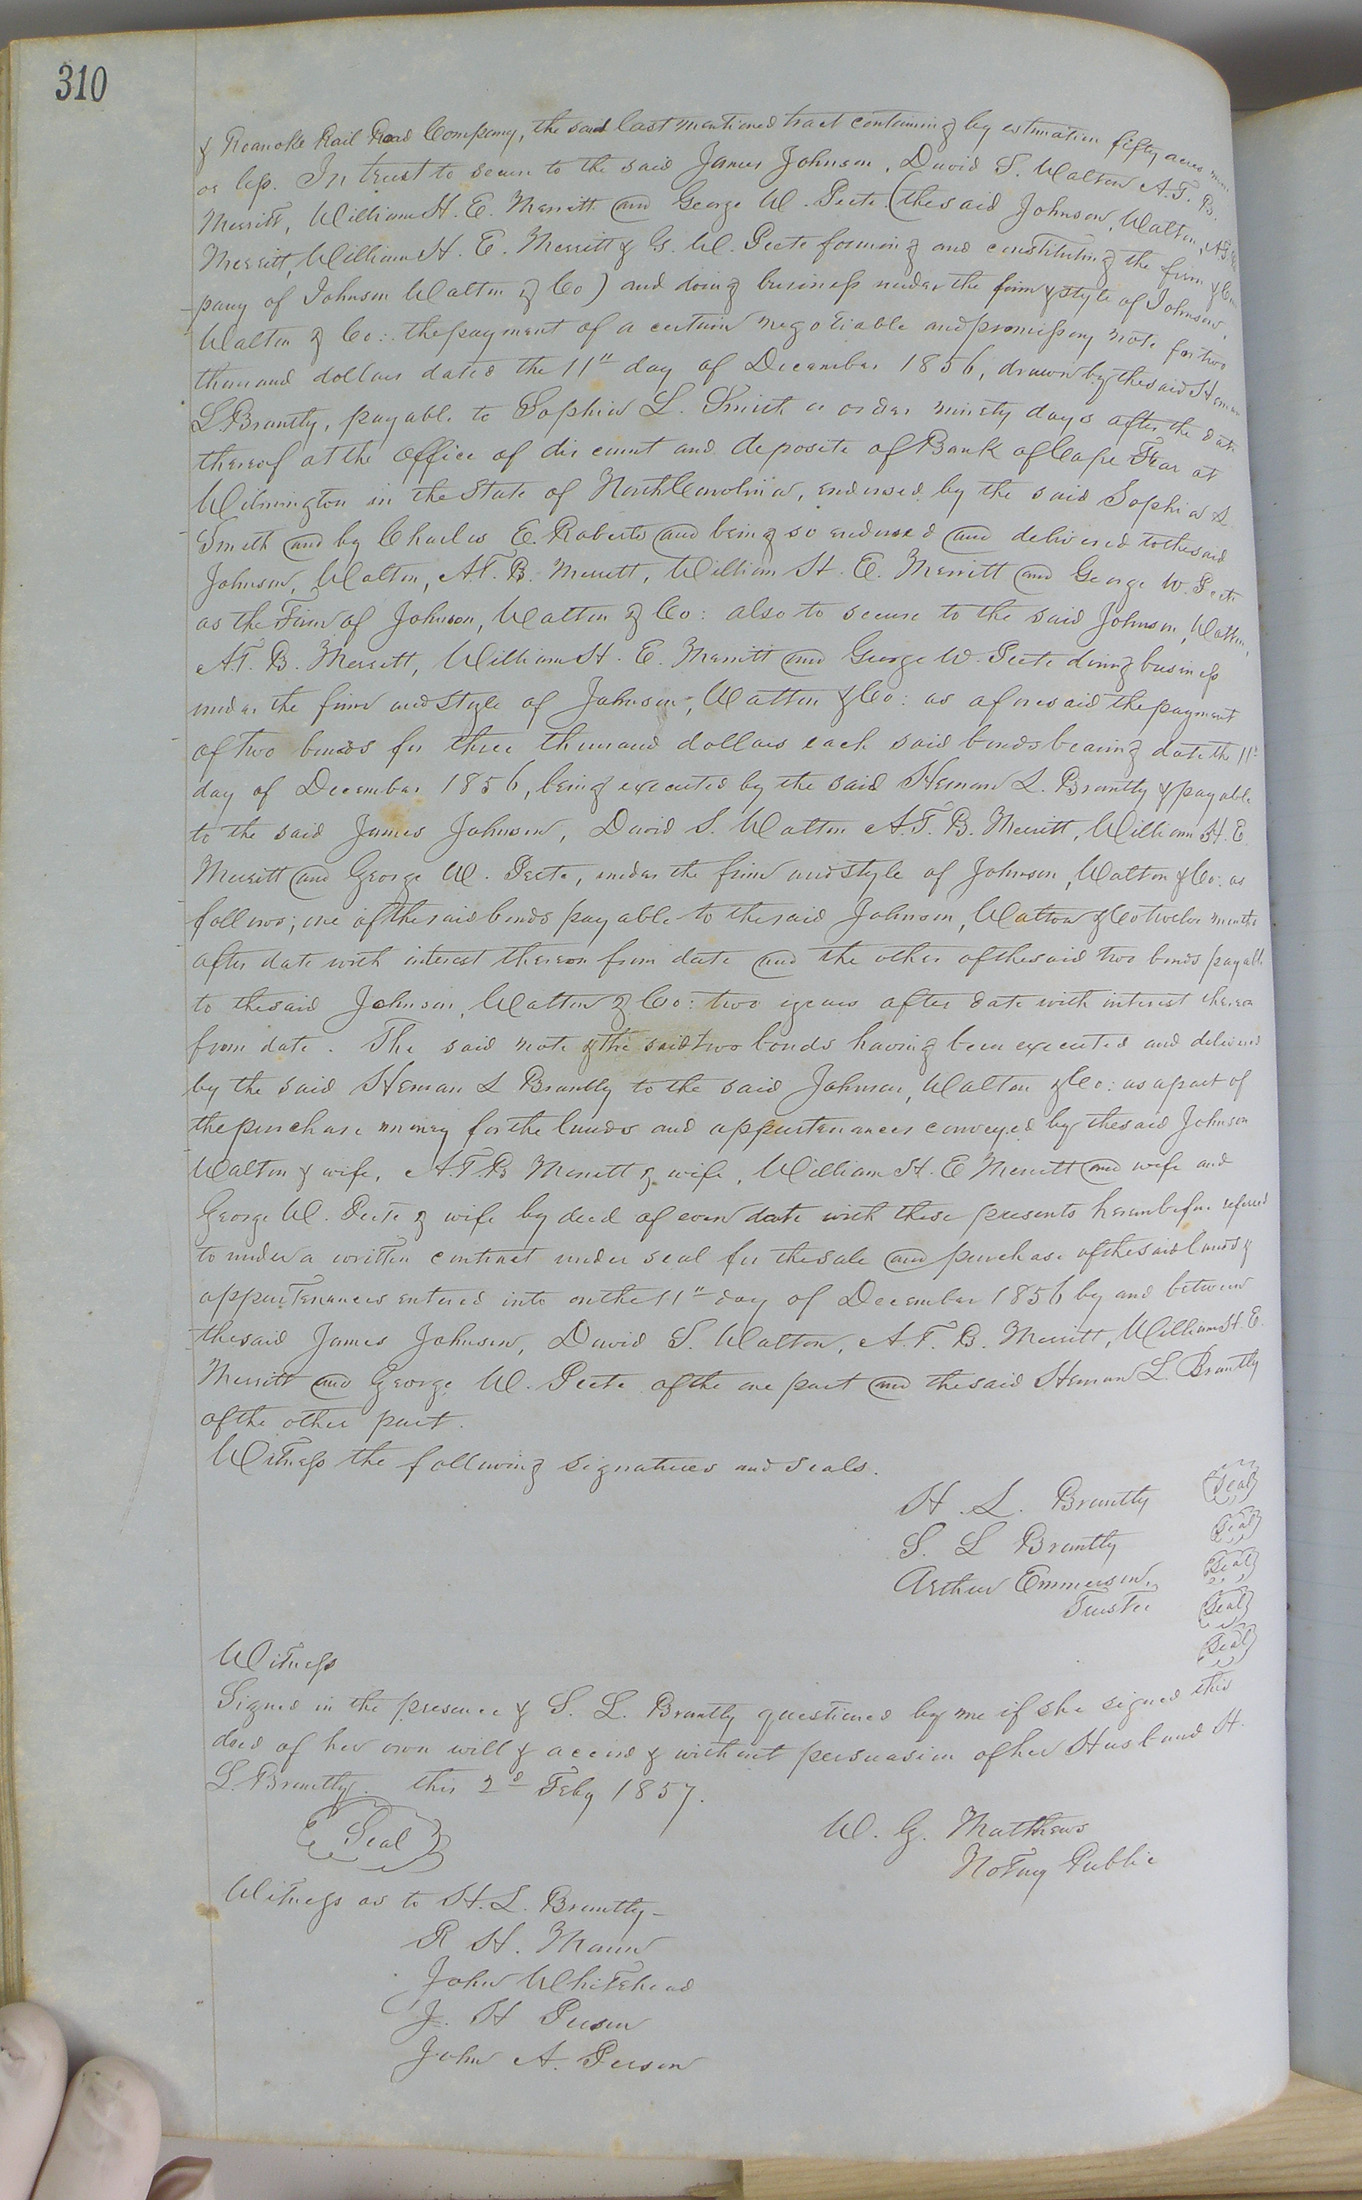 310
& Roanoke Rail Road Company, the said last mentioned tract containing by estimation fifty acres more
or less. In trust to secure to the said James Johnson, David S. Walton A. T. B.
Merritt, William H. E. Merritt and George W. Peete (the said Johnson, Walton, A. T. B.
Merritt, William H. E. Merritt & G. W. Peete forming and constituting the firm & Com
pany of Johnson Walton & Co) and doing business under the firm & style of Johnson,
Walton & Co: the payment of a certain negotiable and promissory note for two
thousand dollars dated the 11" day of December 1856, drawn by the said Heman
L Brantly, payable to Sophia L. Smith or order ninety days after the date
thereof at the office of discount and deposite of Bank of Cape Fear at
Wilmington in the State of North Carolina, endorsed by the said Sophia L
Smith and by Charles E. Roberts and being so endorsed and delivered to the said
Johnson, Walton, A. T. B. Merritt, William H. E. Merritt and George W. Peete
as the Firm of Johnson, Walton & Co: also to secure to the said Johnson, Walton,
A. T. B. Merritt, William H. E. Merritt and George W. Peete doing business
under the firm and style of Johnson, Walton & Co: as aforesaid the payment
of two bonds for three thousand dollars each said bonds bearing date the 11"
day of December 1856, being executed by the said Heman L. Brantly & payable
to the said James Johnson, David S. Walton A. T. B. Merritt, William H. E.
Merritt and George W. Peete, under the firm and style of Johnson, Walton & Co: as
follows; one of the said bonds payable to the said Johnson, Walton & Co twelve months
after date with interest thereon from date and the other of the said two bonds payable
to the said Johnson, Walton & Co: two years after date with interest thereon
from date. The said note & the said two bonds having been executed and delivered
by the said Heman L Brantly to the said Johnson, Walton & Co: as a part of
the purchase money for the lands and appurtenances conveyed by the said Johnson
Walton & wife, A. T. B Merritt & wife, William H. E Merritt and wife and
George W. Peete & wife by deed of even date with these presents hereinbefore referred
to under a written contract under seal for the sale and purchase of the said lands &
appurtenances entered into on the 11" day of December 1856 by and between
the said James Johnson, David S. Walton, A. T. B. Merritt, William H. E.
Merritt and George W. Peete of the one part and the said Heman L. Brantly
of the other part.
Witness the following signatures and seals.
H. L. Brantly Seal
S. L Brantly Seal
Arthur Emmerson, Seal
Trustee Seal
Seal
Witness
Signed in the presence & S. L. Brantly questioned by me if she signed this
deed of her own will & accord & without persuasion of her Husband H.
L. Brantly. this 2d Feby 1857.
Seal
W. G. Matthews
Notary Public
Witness as to H. L. Brantly-
R H. Mann
John Whitehead
J. H Person
John A. Person